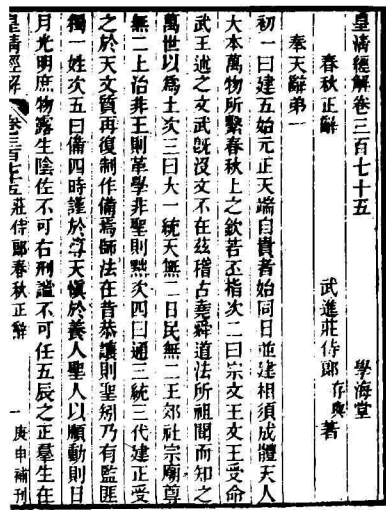 皇清經解卷三百七十五　學海堂
春秋正辭　武進莊侍郎存與著
奉天辭弟一
初一曰建五始元正天端自貴者始同日並建相須成體天人
大本萬物所繫春秋上之欽若丕指次二曰宗文王文王受命
武王述之文武旣沒文不在茲稽古堯舜道法所祖聞而知之
萬世以爲土次三曰大一統天無二日民無二王郊社宗廟尊
無二上治非王則革學非聖則黜次四曰通三統三代建正受
之於天文質再復制作備焉師法在昔恭讓則聖矧乃有監匪
獨一姓次五曰備四時謹於尊天愼於養人聖人以順動則日
月光明庶物露生陰佐不可右刑謐不可任五辰之正羣生在
皇清經解　卷三百七十五　莊侍郎春秋正辭　一　庚申補刊